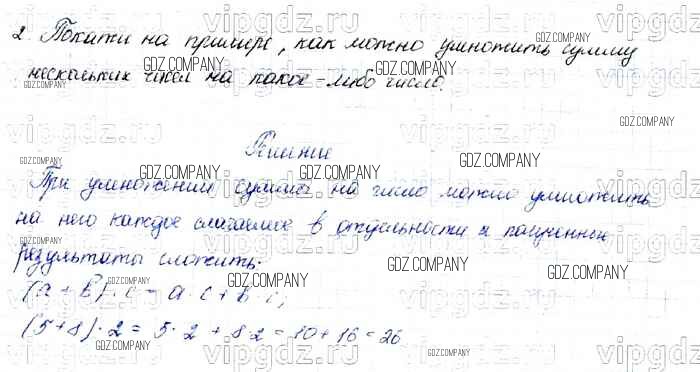 2. Покажи на примере, как можно умножить сумму
нескольких чисел на какое-либо число.
Решение
При умножении суммы на число можно умножить
на него каждое слагаемое в отдельности и полученные
результаты сложить.
(a + b) · c = a · c + b · c;
(5+8) · 2 = 5 · 2 + 8 · 2 = 10 + 16 = 26
vipgdz.ru
GDZ.COMPANY